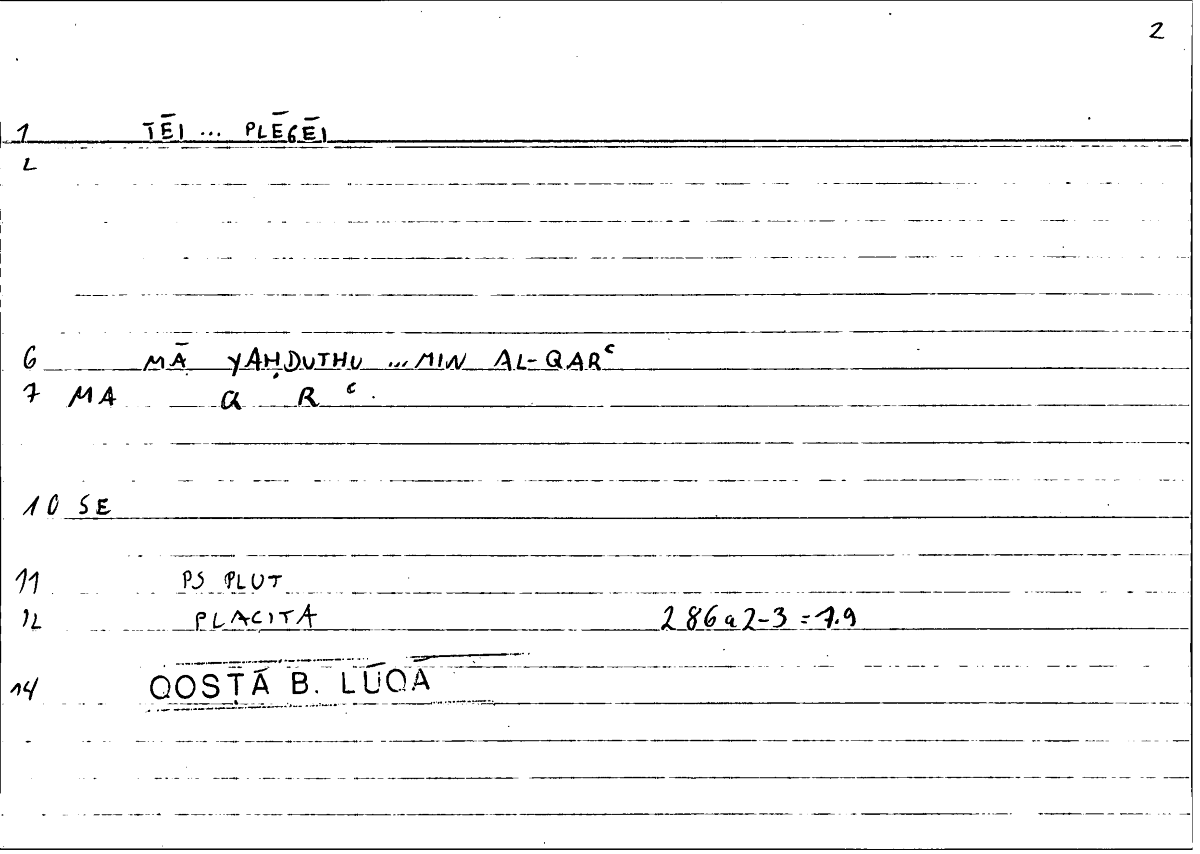 2
1 TĒI ... PLĒGĒI
2
6 MĀ YAḤDUTHU ... MIN AL-QARᶜ
7 MA Q R ᶜ.
10 SE
11 PS PLUT
12 PLACITA 286a2-3 = 1.9
14 QOSṬĀ B. LŪQĀ